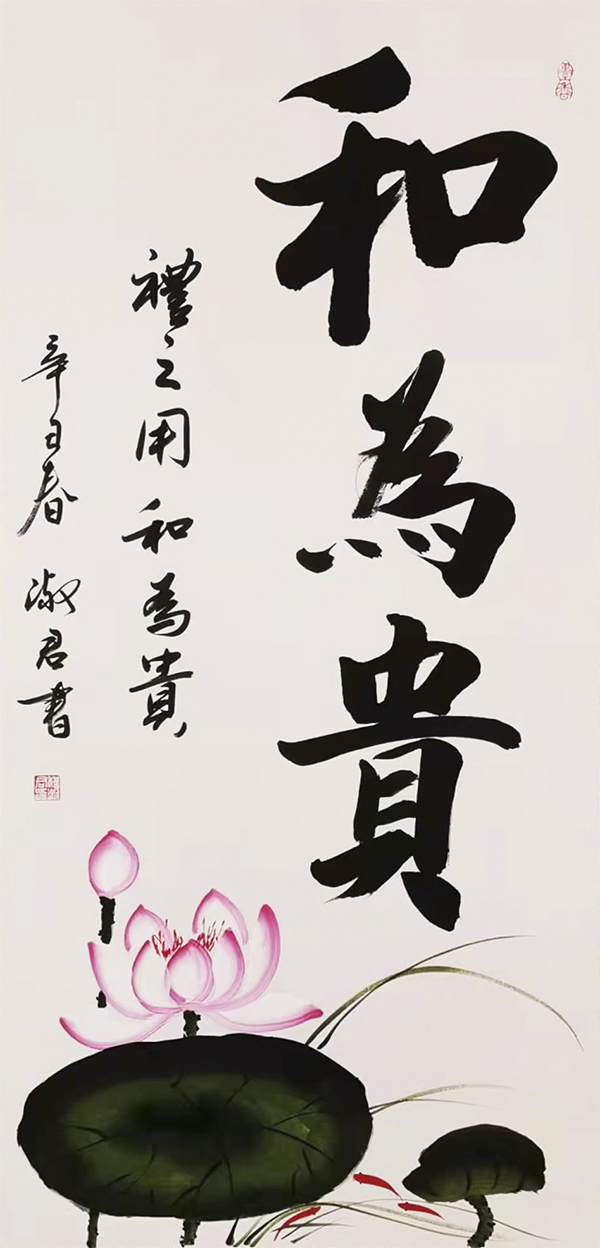 和為貴
禮之用 和為貴
辛丑春 淑君書